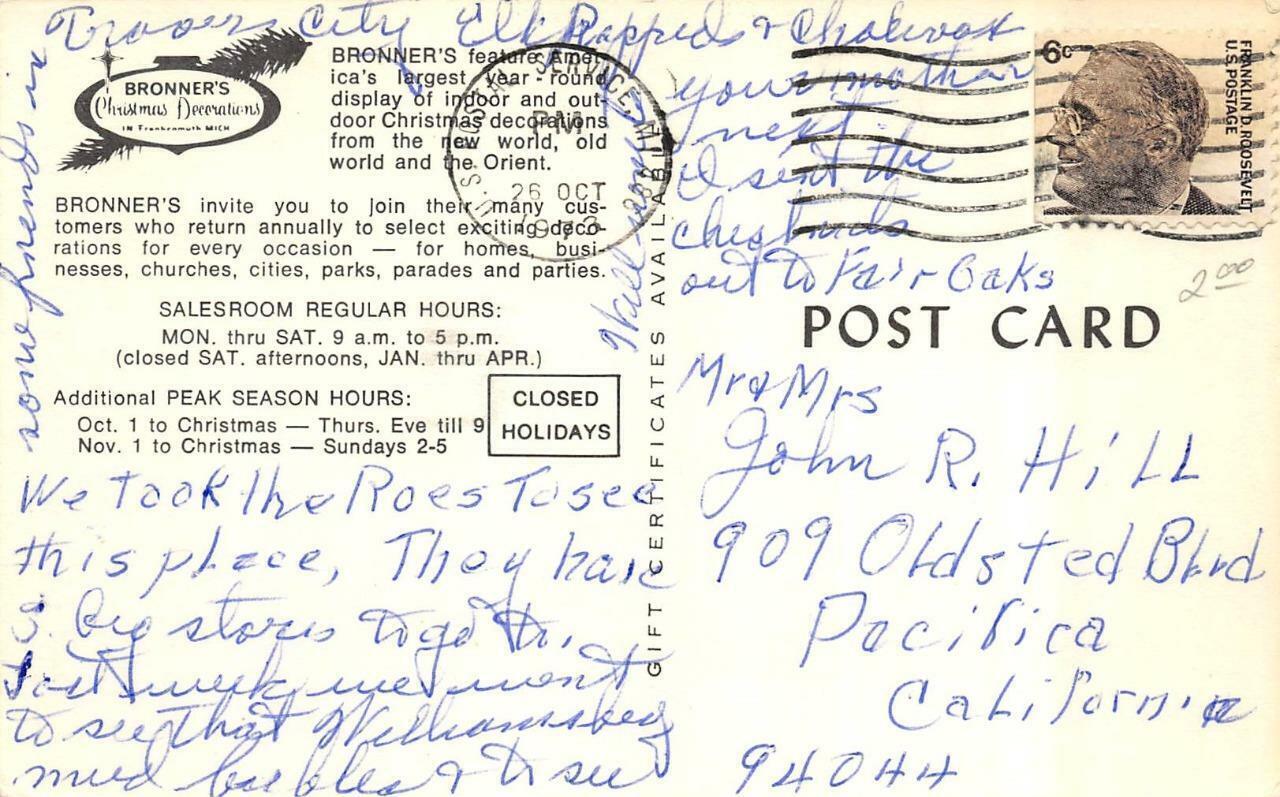 BRONNER'S
Christmas Decorations
IN Frankenmuth MICH
BRONNER'S feature Amer-
ica's largest year-round
display of indoor and out-
door Christmas decorations
from the new world, old
world and the Orient.
BRONNER'S invite you to join their many cus-
tomers who return annually to select exciting deco-
rations for every occasion — for homes, busi-
nesses, churches, cities, parks, parades and parties.
SALESROOM REGULAR HOURS:
MON. thru SAT. 9 a.m. to 5 p.m.
(closed SAT. afternoons, JAN. thru APR.)
Additional PEAK SEASON HOURS:
Oct. 1 to Christmas — Thurs. Eve till 9
Nov. 1 to Christmas — Sundays 2-5
CLOSED
HOLIDAYS
We took the Roes To see
this place, They have
big stores to go to,
Last week we went
to see that Williamsburg
& to see
some friends in
Travers City Elk Rappids &
Will
your mother
next
I sent the
out to Fair Oaks
GIFT CERTIFICATES AVAILABLE
U.S. POSTAL SERVICE MI
PM
26 OCT
6c
FRANKLIN D. ROOSEVELT
U.S. POSTAGE
2.00
POST CARD
Mr & Mrs
John R. Hill
909 Oldsted Blvd
Pacifica
California
94044